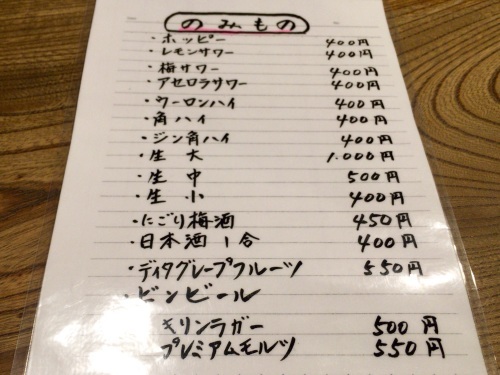 のみもの
・ホッピー 400円
・レモンサワー 400円
・梅サワー 400円
・アセロラサワー 400円
・ウーロンハイ 400円
・角ハイ 400円
・ジン角ハイ 400円
・生 大 1.000円
・生 中 500円
・生 小 400円
・にごり梅酒 450円
・日本酒 1合 400円
・ディタグレープフルーツ 550円
・ビンビール
キリンラガー 500円
プレミアムモルツ 550円